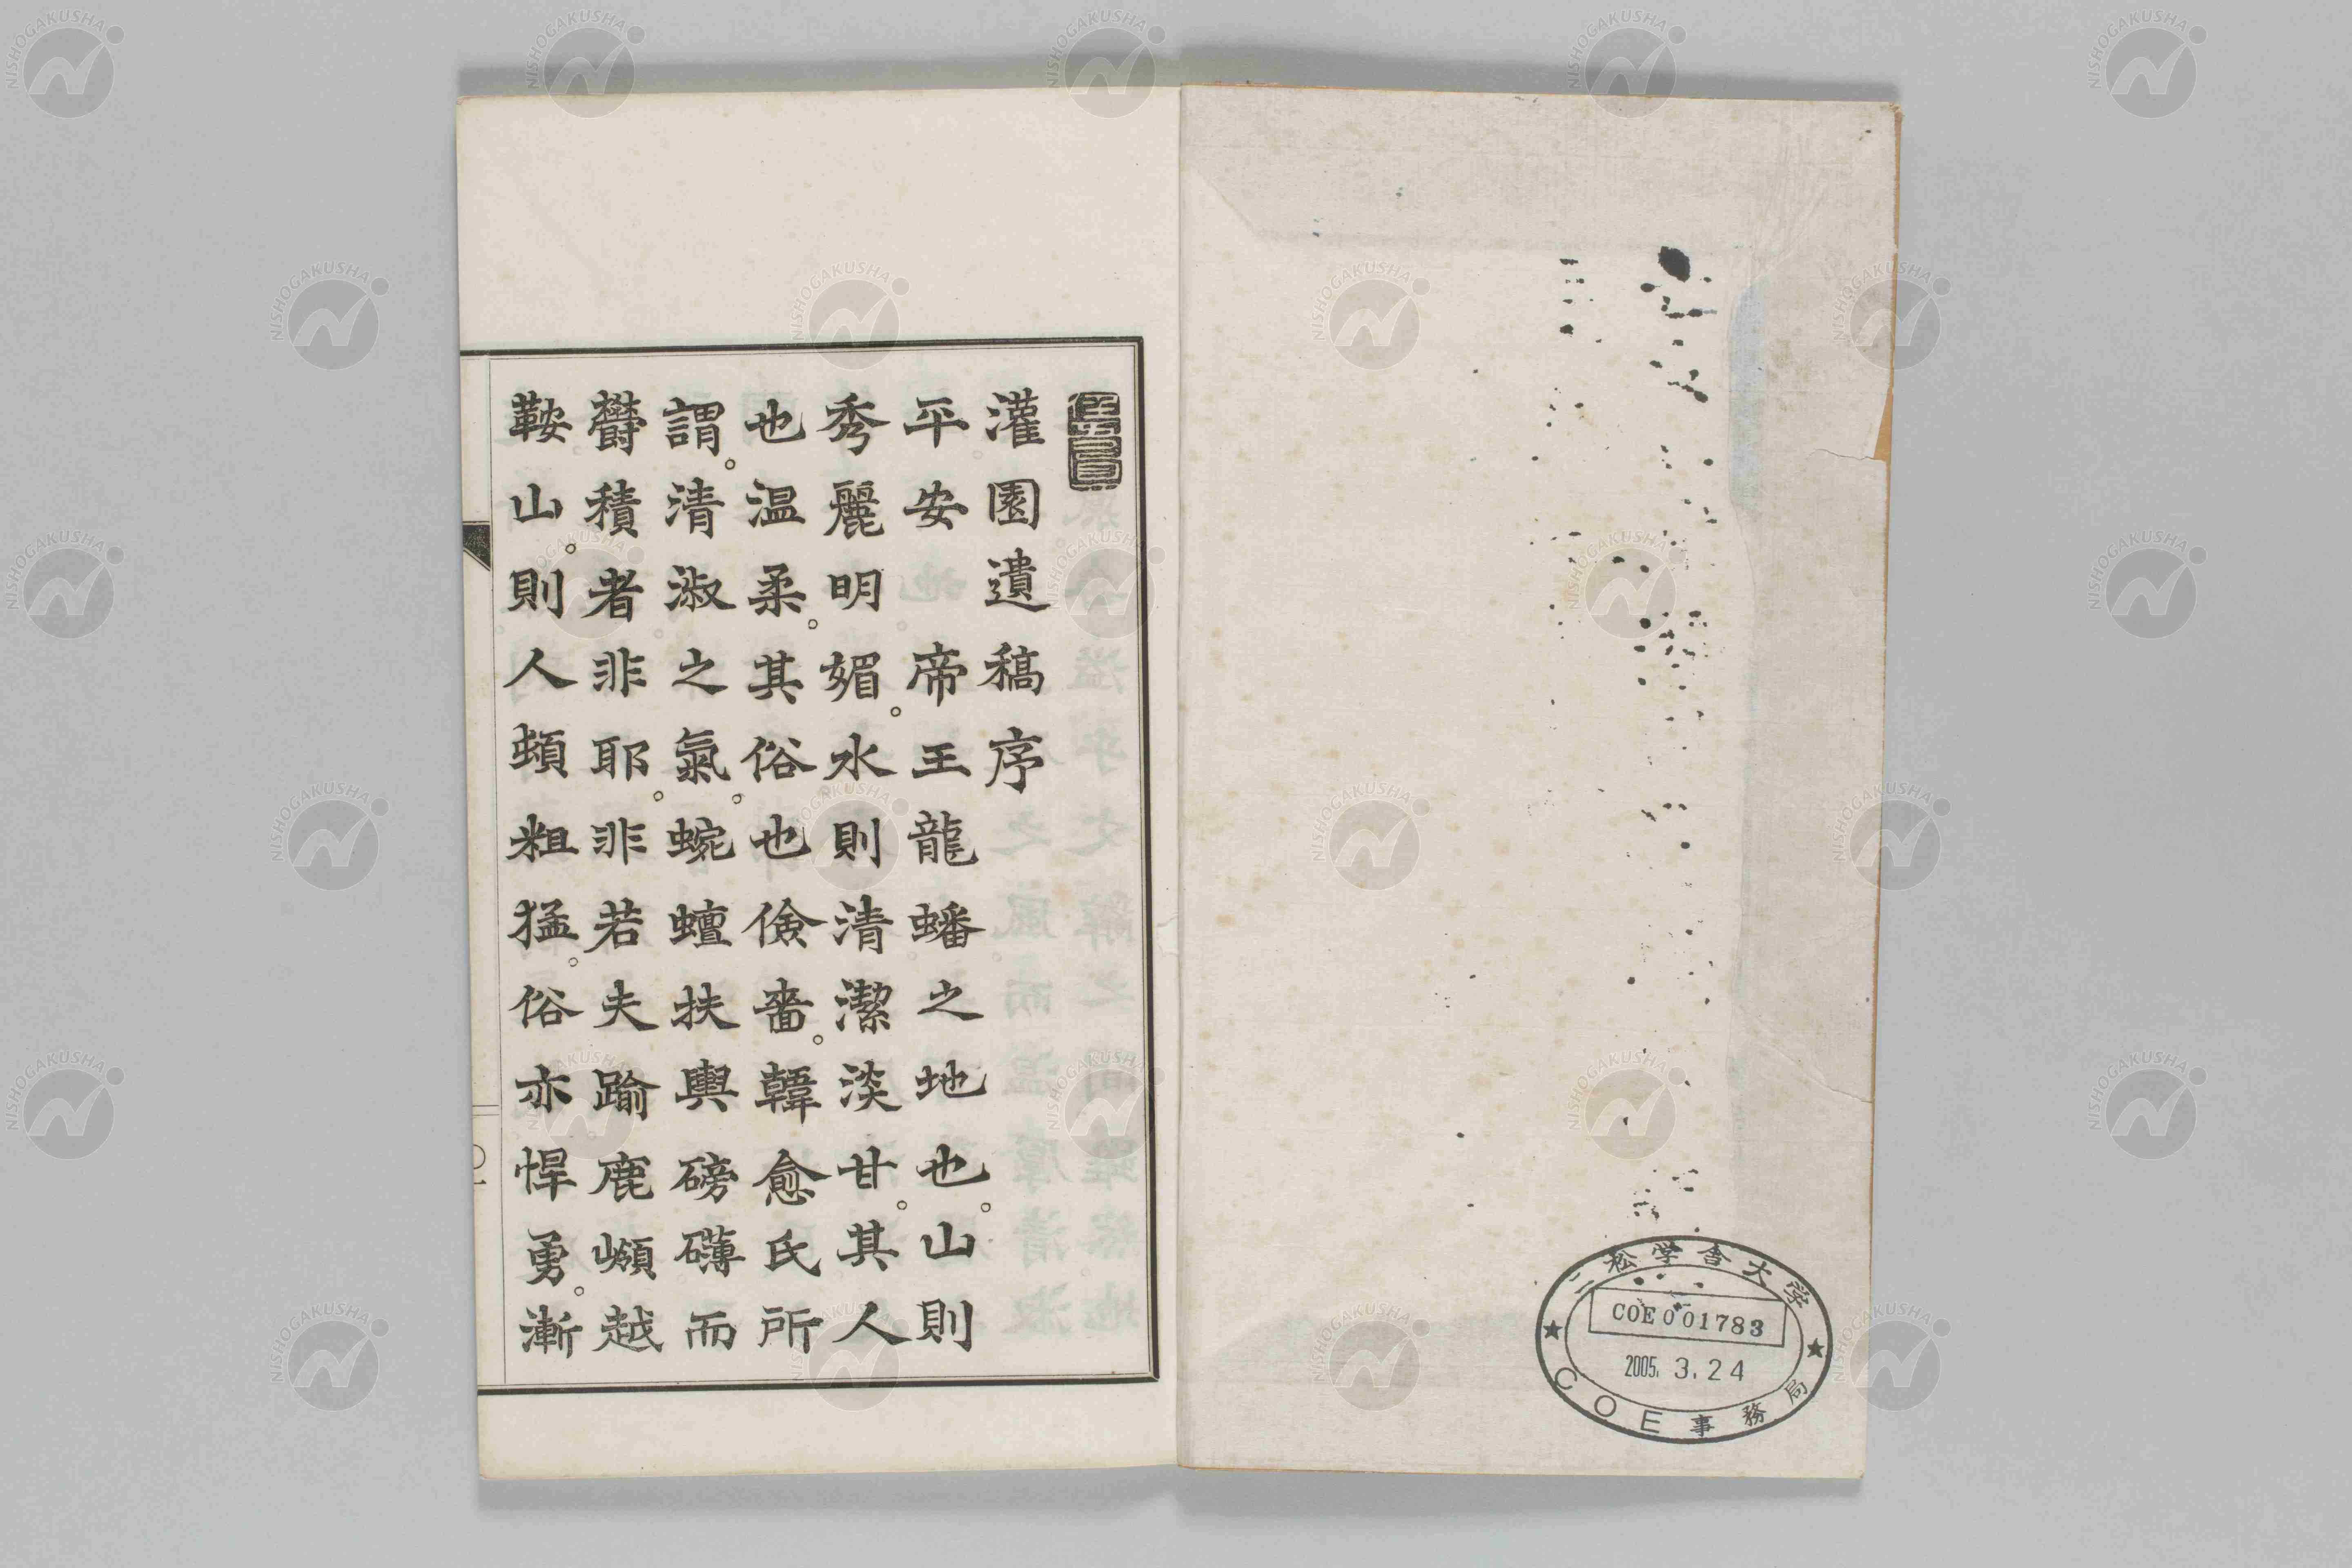 灌園遺稿序
平安　帝王龍蟠之地也。山則
秀麗明媚。水則清潔淡甘。其人
也温柔。其俗也儉嗇。韓愈氏所
謂。清淑之氣。蜿蟺扶輿磅礴而
欝積者非耶。非若夫踰鹿嶺越
鞍山。則人頓粗猛。俗亦悍勇。漸
二松学舎大学
COE001783
2005. 3. 24
COE事務局
NISHOGAKUSHA